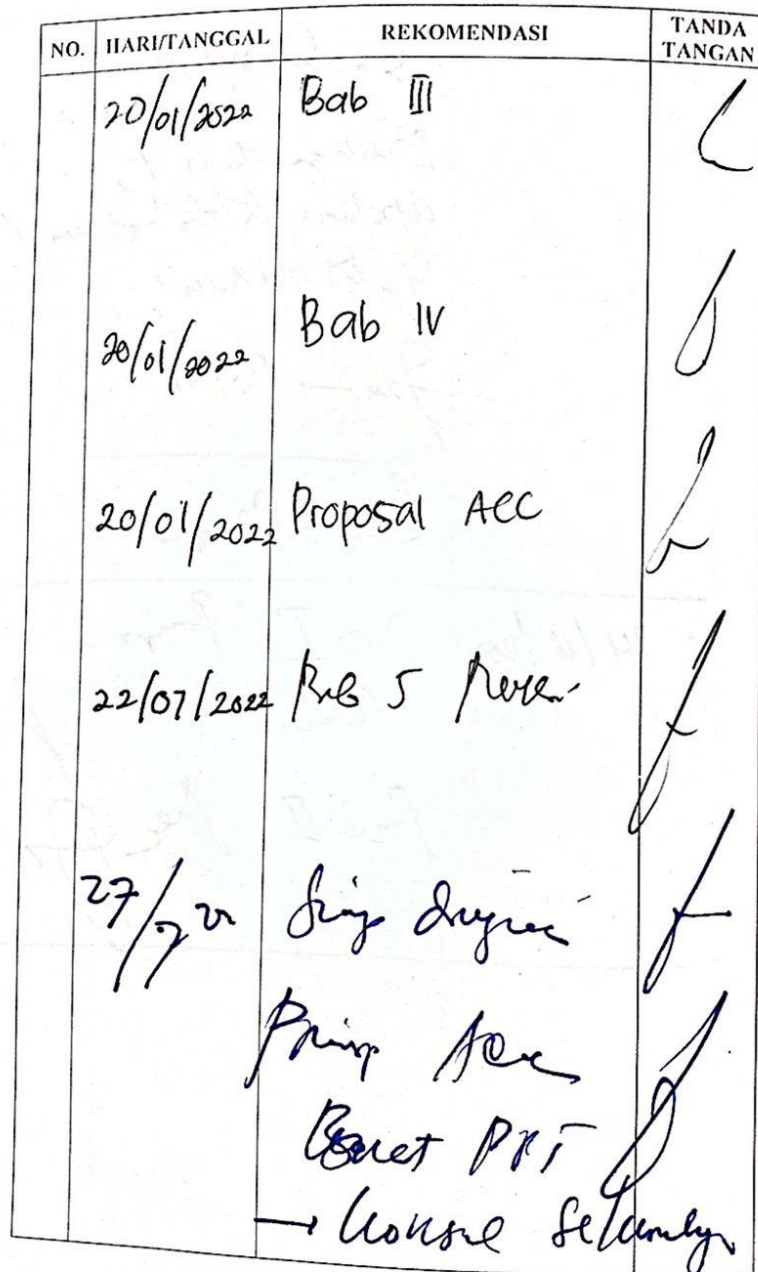 NO. HARI/TANGGAL REKOMENDASI TANDA TANGAN
20/01/2022 Bab III
20/01/2022 Bab IV
20/01/2022 Proposal ACC
22/07/2022 Bab 5
27/7 22
Prinsip Acc
Buat PPT
→ Konsul